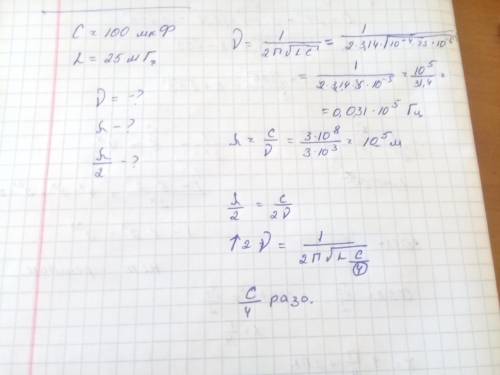 C = 100 мкФ
L = 25 мГц
ν = -?
λ - ?
λ/2 - ?
ν = 1/(2π√LC) = 1/(2·3,14·√(10⁻⁴·25·10⁻⁶))
= 1/(2·3,14·5·10⁻⁵) = 10⁵/31,4 =
= 0,031·10⁵ Гц
λ = c/ν = 3·10⁸/3·10³ = 10⁵ м
λ/2 = c/2ν
↑2ν = 1/(2π√(L C/4))
C/4 раза.